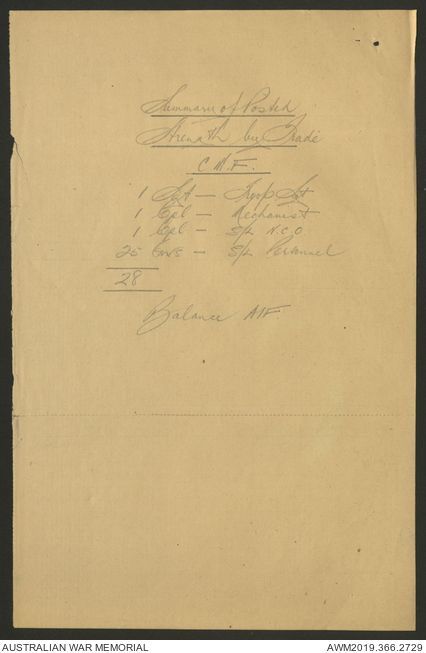 Summary of Posted
Strength by Trade
C.M.F.
1 Sgt — Troop Sgt
1 Cpl — Mechanist
1 Cpl — S/L N.C.O
25 — S/L Personnel
28
Balance AIF.
AUSTRALIAN WAR MEMORIAL
AWM2019.366.2729